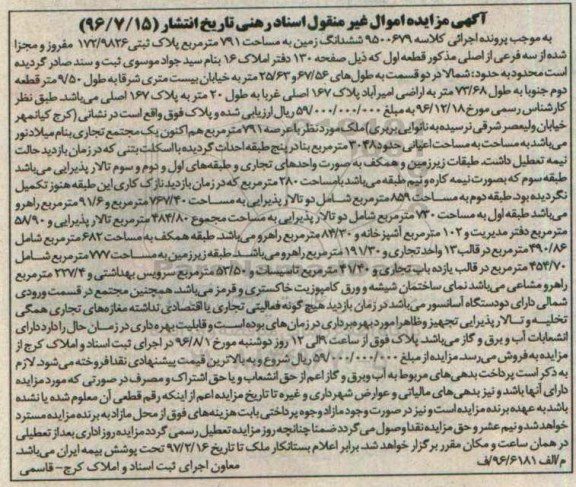 آگهی مزایده اموال غیر منقول اسناد رهنی تاریخ انتشار (۹۶/۷/۱۵)
به موجب پرونده اجرائی کلاسه ۹۵۰۰۶۷۹ ششدانگ زمین به مساحت ۷۹۱ مترمربع پلاک ثبتی ۱۷۲/۹۸۲۶ مفروز و مجزا
شده از سه فرعی از اصلی مذکور قطعه اول که ذیل صفحه ۱۳۰ دفتر املاک ۱۶ بنام سید جواد موسوی ثبت و سند صادر گردیده
است محدود به حدود: شمالا در دو قسمت به طول های ۶۷/۵۶ و ۲۵/۶۳ متر به خیابان بیست متری شرقا به طول ۹/۵۰ متر قطعه
دوم جنوبا به طول ۷۳/۶۸ متر به اراضی امیرآباد پلاک ۱۶۷ اصلی غربا به طول ۲۰ متر به پلاک ۱۶۷ اصلی می‌باشد. طبق نظر
کارشناس رسمی مورخ ۹۶/۱۲/۱۸ به مبلغ ۵۹/۰۰۰/۰۰۰/۰۰۰ ریال ارزیابی شده و پلاک فوق واقع است در نشانی (کرج کیانمهر
خیابان ولیعصر شرقی نرسیده به نانوایی بربری) ملک مورد نظر با عرصه ۷۹۱ مترمربع هم اکنون یک مجتمع تجاری بنام میلاد نور
می‌باشد به مساحت به مساحت اعیانی حدود ۳۰۳۸ مترمربع بنا در پنج طبقه احداث گردیده با اسکلت بتنی که در زمان بازدید حالت
نیمه تعطیل داشت. طبقات زیرزمین و همکف به صورت واحدهای تجاری و طبقه‌های اول و دوم و سوم تالار پذیرایی می‌باشد
طبقه سوم که بصورت نیمه کاره و نیم طبقه می‌باشد با مساحت ۲۸۰ مترمربع که در زمان بازدید نازک کاری این طبقه هنوز تکمیل
نگردیده بود. طبقه دوم به مساحت ۸۵۹ مترمربع شامل دو تالار پذیرایی به مساحت ۷۶۷/۴۰ مترمربع و ۹۱/۶ مترمربع راهرو
می‌باشد طبقه اول به مساحت ۷۳۰ مترمربع شامل دو تالار پذیرایی به مساحت مجموع ۴۸۴/۸۰ مترمربع تالار پذیرایی و ۵۸/۹۰
مترمربع دفتر مدیریت و ۱۰۲ مترمربع آشپزخانه و ۸۴/۳۰ مترمربع راهرو می‌باشد. طبقه همکف به مساحت ۶۸۲ مترمربع شامل
۴۹۰/۸۶ مترمربع در قالب ۱۳ واحد تجاری و ۱۹۱/۳۰ مترمربع راهرو می‌باشد. طبقه زیرزمین به مساحت ۷۷۷ مترمربع شامل
۴۵۴/۷۰ مترمربع در قالب یازده باب تجاری و ۴۷/۴۰ مترمربع تاسیسات و ۵۳/۵۰ مترمربع سرویس بهداشتی و ۲۲۷/۴ مترمربع
راهرو مشاعی می‌باشد نمای ساختمان شیشه و ورق کامپوزیت خاکستری و قرمز می‌باشد. همچنین مجتمع در قسمت ورودی
شمالی دارای دو دستگاه آسانسور می‌باشد در زمان بازدید هیچ گونه فعالیتی تجاری یا اقتصادی نداشته مغازه‌های تجاری همگی
تخلیه و تالار پذیرایی تجهیز و ظاهرا مورد بهره برداری در زمان های بوده است و قابلیت بهره داری در زمان حال را دارد دارای
انشعابات آب و برق و گاز می‌باشد. پلاک فوق از ساعت ۹ الی ۱۲ روز دوشنبه مورخ ۹۶/۸/۱ در اجرای ثبت اسناد و املاک کرج از
مزایده به فروش می‌رسد. مزایده از مبلغ ۵۹/۰۰۰/۰۰۰/۰۰۰ ریال شروع و به بالاترین قیمت پیشنهادی نقدا فروخته می‌شود. لازم
به ذکر است پرداخت بدهی‌های مربوط به آب و برق و گاز اعم از حق انشعاب و یا حق اشتراک و مصرف در صورتی که مورد مزایده
دارای آنها باشد و نیز بدهی های مالیاتی و عوارض شهرداری و غیره تا تاریخ مزایده اعم از اینکه رقم قطعی آن معلوم شده یا نشده
باشد به عهده برنده مزایده است و نیز در صورت وجود مازاد وجوه پرداختی بابت هزینه‌های فوق از محل مازاد به برنده مزایده مسترد
خواهد شد و نیم عشر و حق مزایده نقدا وصول می‌گردد ضمنا چنانچه روز مزایده تعطیل رسمی گردد مزایده روز اداری بعد از تعطیلی
در همان ساعت و مکان مقرر برگزار خواهد شد. برابر اعلام بستانکار ملک تا تاریخ ۹۷/۲/۱۶ تحت پوشش بیمه ایران می‌باشد.
م/الف ۹۶/۶۱۸۱/ف معاون اجرای ثبت اسناد و املاک کرج - قاسمی